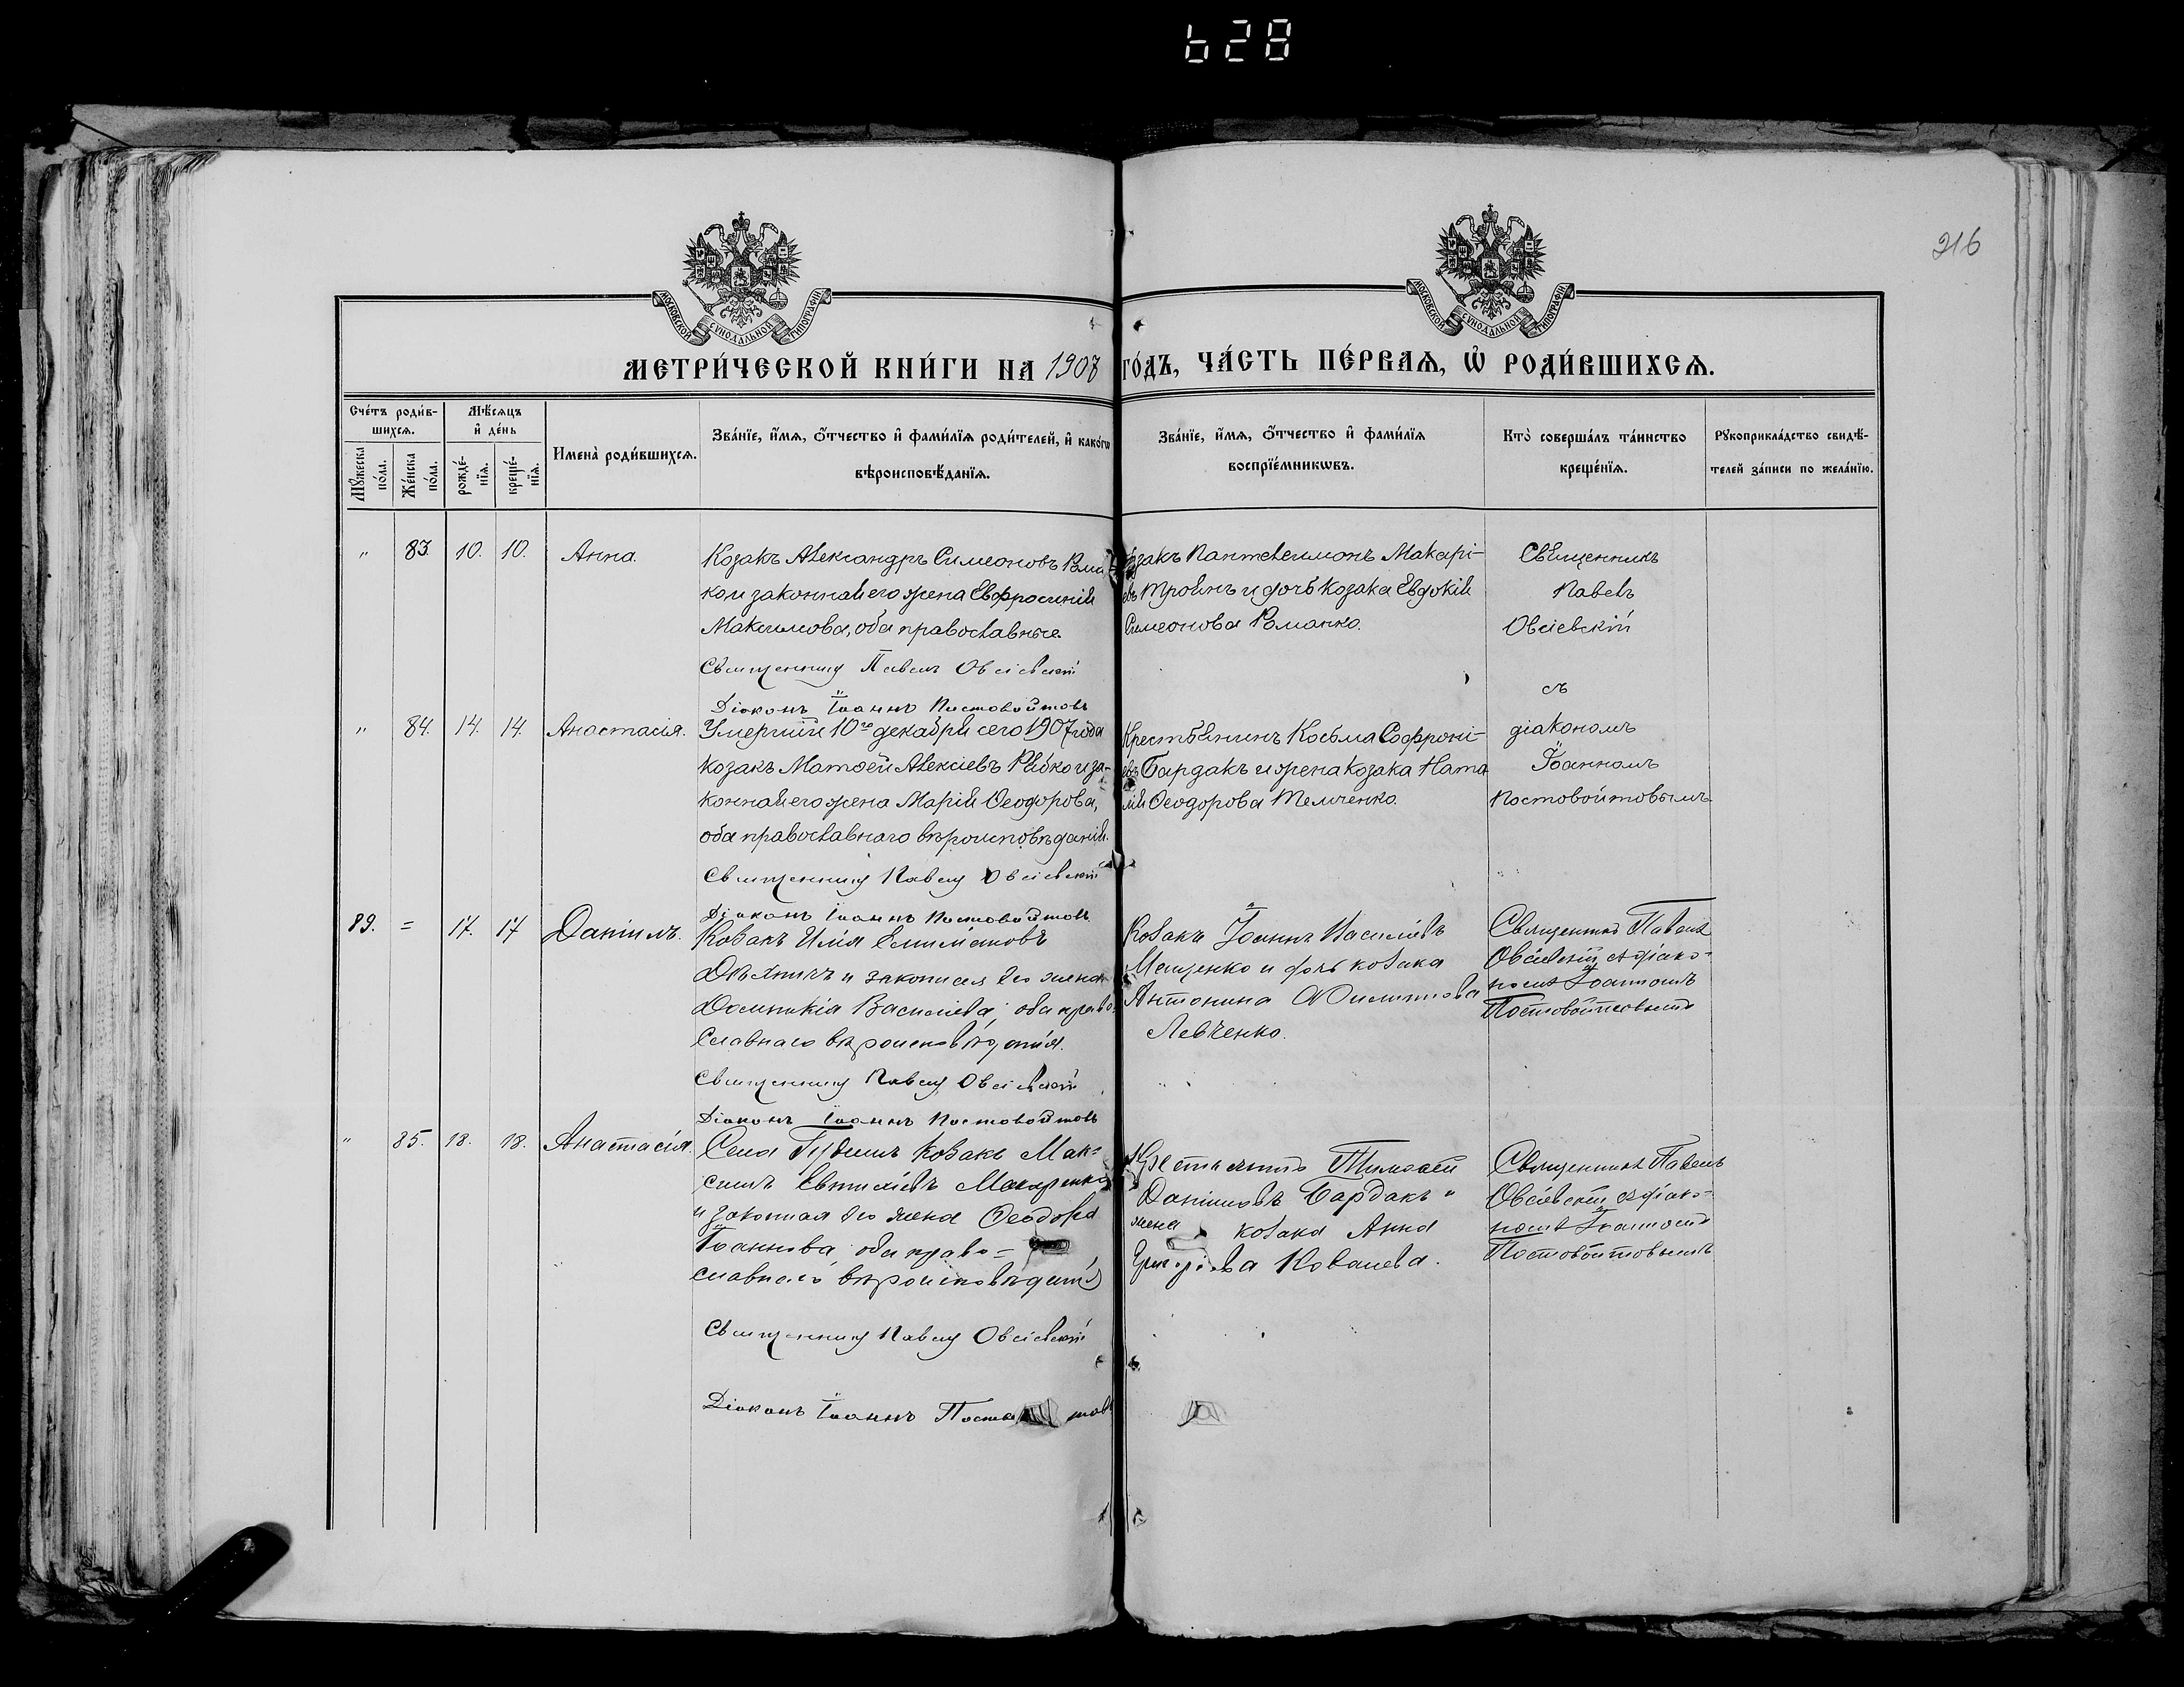 628
216
МОСКОВСКОЙ СУНОДАЛЬНОЙ ТИПОГРАФІИ
МОСКОВСКОЙ СУНОДАЛЬНОЙ ТИПОГРАФІИ
МЕТРИ́ЧЕСКОЙ КНИ́ГИ НА 1907 ГО́ДЪ, ЧА́СТЬ ПЕ́РВАѦ, Ѡ҆ РОДИ́ВШИХСѦ.
Сче́тъ роди́в-
шихсѧ.
Мꙋ́жеска
по́ла.
Же́нска
по́ла.
Мѣ́сѧцъ
и҆ де́нь
рожде́-
нїѧ.
креще́-
нїѧ.
Имена̀ роди́вшихсѧ.
Зва́нїе, и҆́мѧ, ѻ҆́тчество и҆ фами́лїѧ роди́телей, и҆ како́гѡ
вѣроисповѣ́данїѧ.
Зва́нїе, и҆́мѧ, ѻ҆́тчество и҆ фами́лїѧ
воспрїе́мникѡвъ.
Кто̀ соверша́лъ та́инство
креще́нїѧ.
Рꙋкоприкла́дство свидѣ́-
телей за́писи по жела́нїю.
" 83. 10. 10. Анна.
Козакъ Александръ Симеоновъ Рома
ко и законная его жена Евфросинія
Максимова, оба православные.
Священникъ Павелъ Овсіевскій
Діаконъ Іоаннъ Постовойтовъ
Козакъ Пантелеимонъ Макарі-
евъ Троянъ и дочь козака Евдокія
Симеонова Романко.
Священникъ
Павелъ
Овсіевскій
съ
діакономъ
Іоанномъ
Постовойтовымъ
" 84. 14. 14. Анастасія.
Умершій 10го декабря сего 1907 года
козакъ Матѳей Алексіевъ Рябко и за-
конная его жена Марія Ѳеодорова,
оба православнаго вѣроисповѣданія.
Священникъ Павелъ Овсіевскій
Діаконъ Іоаннъ Постовойтовъ
Крестьянинъ Косьма Софроні-
евъ Бардакъ и жена козака Ната
лія Ѳеодорова Темченко.
89. = 17. 17 Даніилъ.
Козакъ Илія
и законная его жена
Домникія Василіева, оба право-
славнаго вѣроисповѣданія.
Священникъ Павелъ Овсіевскій
Діаконъ Іоаннъ Постовойтовъ
Козакъ Іоаннъ Василіевъ
и дочь козака
Антонина
Левченко.
Священникъ Павелъ
Овсіевскій съ діако-
номъ Іоанномъ
Постовойтовымъ
" 85. 18. 18. Анастасія.
Села козакъ Мак-
симъ Евтихіевъ Макаренко
и законная его жена Ѳеодора
Іоаннова оба право=
славнаго вѣроисповѣданія
Священникъ Павелъ Овсіевскій
Діаконъ Іоаннъ
Крестьянинъ Тимоѳей
Даніиловъ Бардакъ и
жена козака Анна
Григоріева Ковалева.
Священникъ Павелъ
Овсіевскій съ діако-
номъ Іоанномъ
Постовойтовымъ